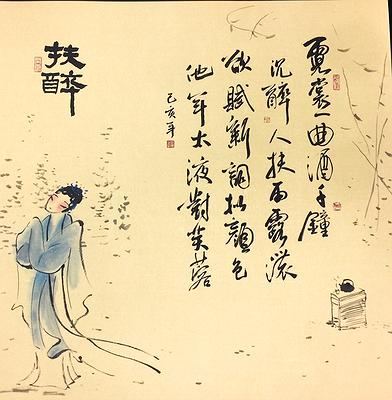 扶醉
霓裳一曲酒千鐘
沉醉人扶雨露濃
欲賦新調拟顏色
他年太液對芙蓉
己亥年